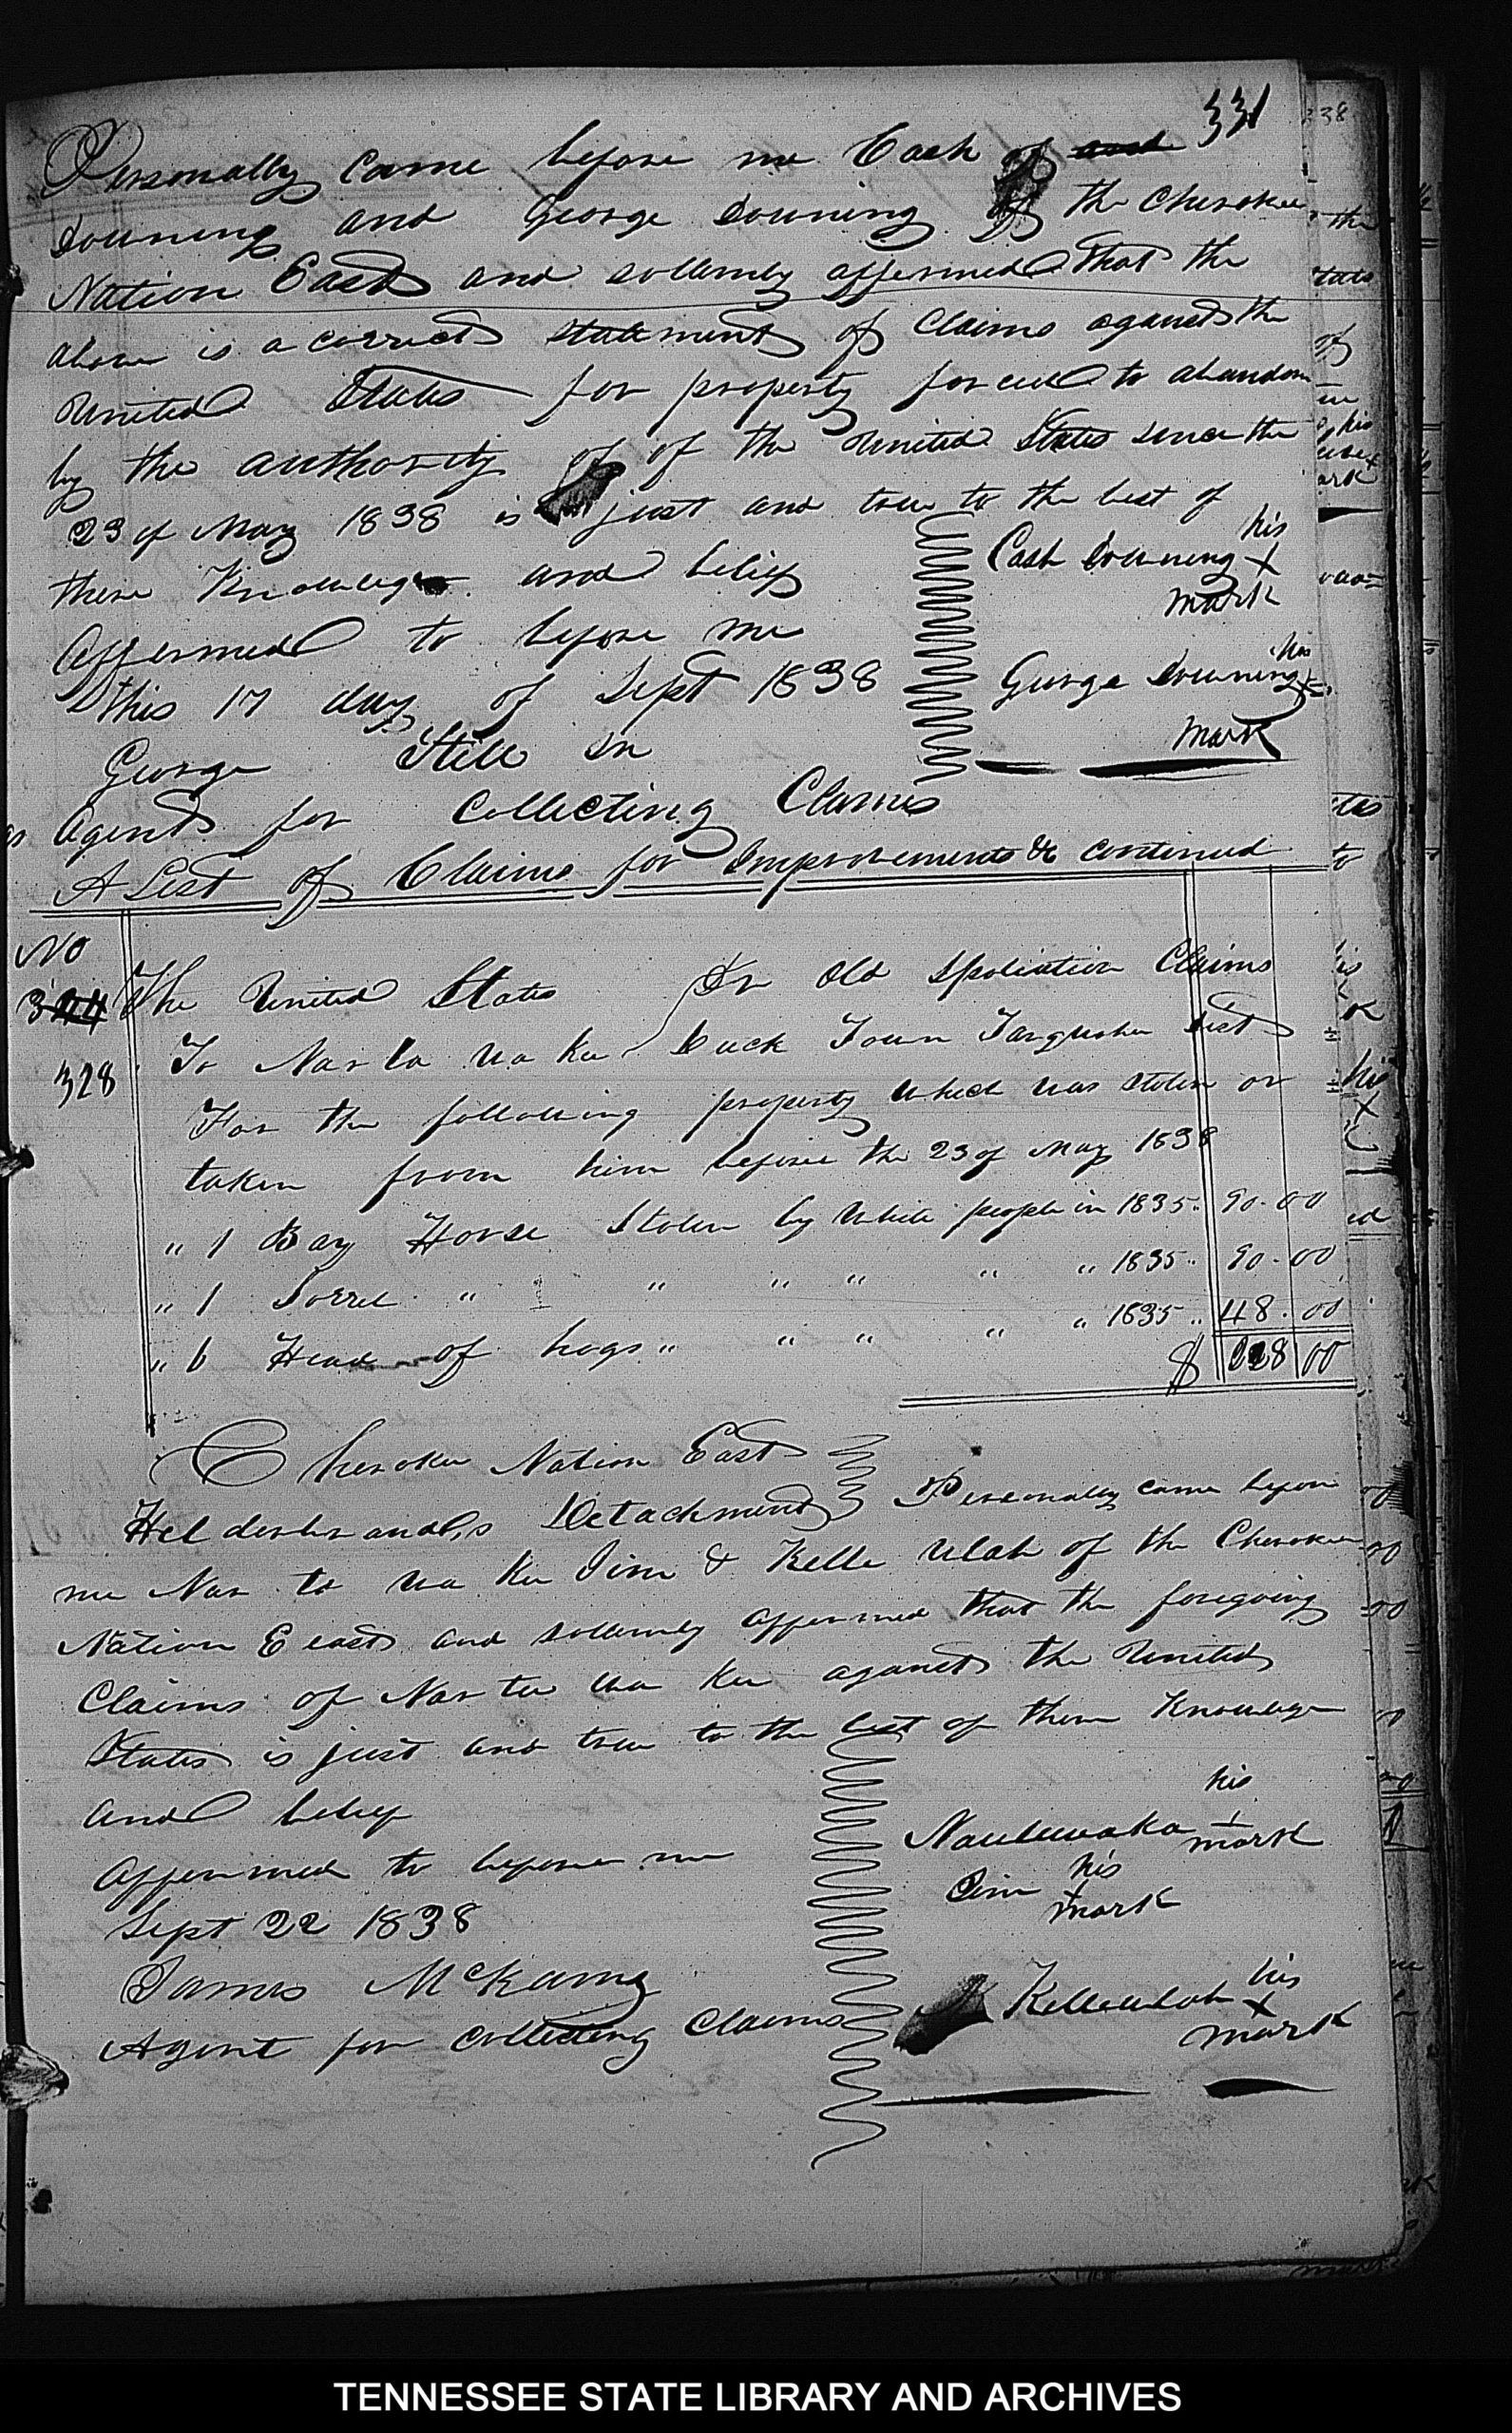 331
Personally came before me Cash of and
Downing and George Downing of the Cherokee
Nation East and sollemly affermed that the
above is a correct statement of Claims aganst the
United States for property forced to abandon
by the authority of of the United States sence the
23 of May 1838 is just and true to the best of
there Knowledge and belief
Cash Downing his
x
mark
Affermed to before me
this 17 day of Sept 1838
George Downing his
x
mark
George Still Sn
Agent for Collecting Claims
A List of Claims for Improvements &c continued
No
324
The United States Dr Old Spoliation Claims
328
To Nar ta wa kee Duck Town Tarquohee Dist
For the following property which was stolen or
taken from him before the 23 of May 1838
" 1 Bay Horse Stolen by White people in 1835 .. 90.00
" 1 Sorrel " " " " " " 1835 .. 90.00
" 6 Head of hogs " " " " " 1835 .. 48.00
$ 228 00
Cherokee Nation East
Helderbrand,s Detachment Personally came before
me Nar ta wa kee Jim & Kelle Ulah of the Cherokee
Nation E east and sollemly affermed that the foregoing
Claims of Nar ta wa kee aganst the United
States is just and true to the best of there Knowledge
and belief
his
Nautuwaka x
mark
Affermed to before me
Jim his
x
mark
Sept 22 1838
James McKamy
Kelleulah his
x
mark
Agent for Collecting Claims
TENNESSEE STATE LIBRARY AND ARCHIVES